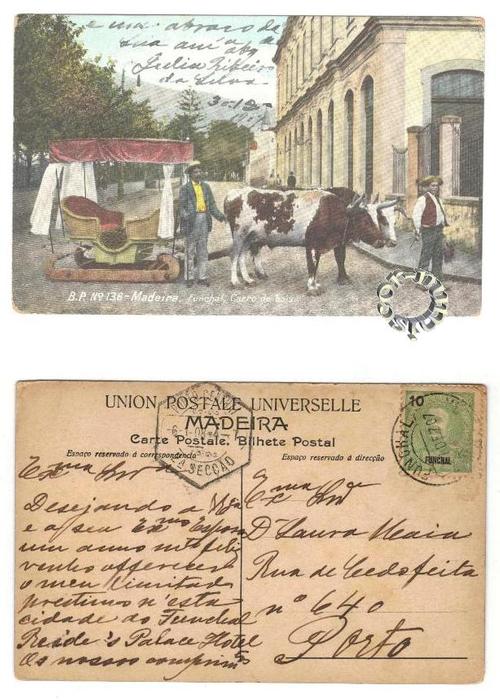 e um abraço da
Sua am.ª e
Julia Ribeiro
da Silva
30-12-
B.P. Nº 136 - Madeira. Funchal, Carro de bois
UNION POSTALE UNIVERSELLE
MADEIRA
Carte Postale. Bilhete Postal
Espaço reservado á correspondencia
Espaço reservado á direcção
10
FUNCHAL
FUNCHAL
6-1-08
SECÇÃO
Exma Snra
Desejando a V. Exa
e a seu Exmo Esposo
um anno mto feliz
venho offerecer
o meu limitado
prestimo n'esta
cidade do Funchal
Reide's Palace Hotel
Os nossos cumprimtos
Exma Snra
D Laura Maia
Rua de Cedofeita
nº 640
Porto